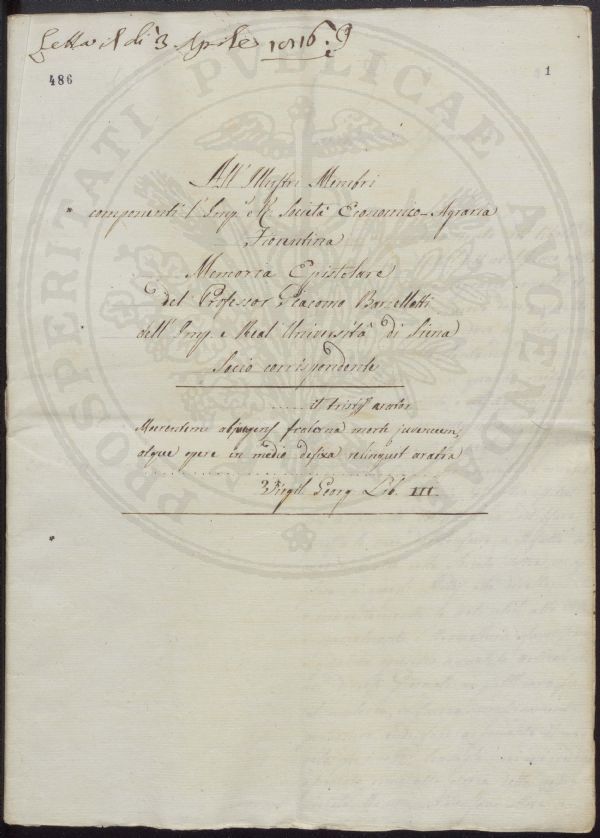 Letta il dì 3 Aprile 1816
486
1
All' Illustri Membri
componenti l' Imp.e R. Società Economico-Agraria
Fiorentina
Memoria Epistolare
del Professor Giacomo Barzellotti
dell' Imp. e Real Università di Siena
Socio corrispondente
..... it tristis arator
Moerentem abjungens fraterna morte juvencum,
atque opere in medio defixa relinquit aratra
Virgil. Georg Lib. III.
PROSPERITATI PUBLICAE AUGENDAE